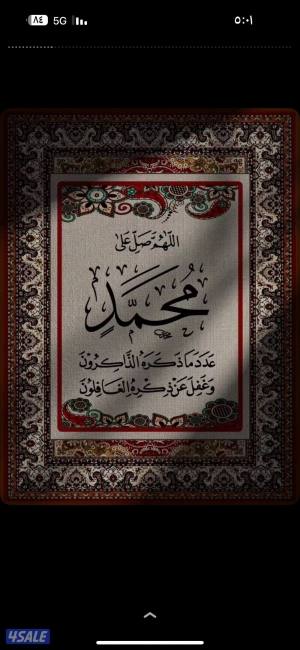 ٨٤ 5G ٥:٠١
اللّهُمَّ صَلِّ عَلىٰ
مُحَمَّدٍ
عَدَدَ مَا ذَكَرَهُ الذَّاكِرُونَ
وَغَفِلَ عَنْ ذِكْرِهِ الغَافِلُونَ
4SALE